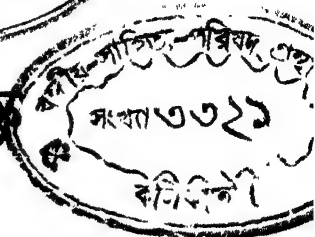 বঙ্গীয় সাহিত্য পরিষদ গ্রন্থ
সংখ্যা ৩৩২১
কলিকাতা